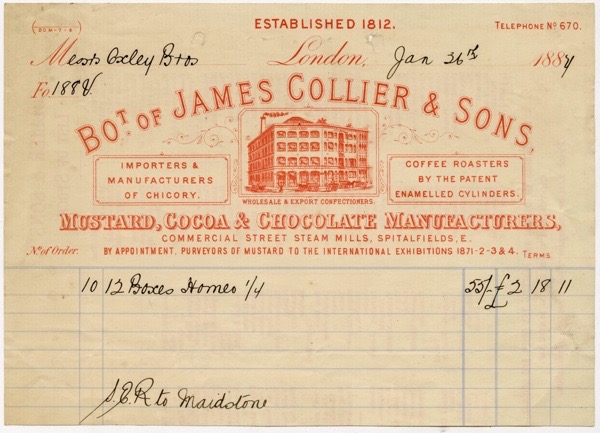 ESTABLISHED 1812.
TELEPHONE No 670.
Messrs Oxley Bros London, Jan 26th 1884
Fo. 188
BOT. OF JAMES COLLIER & SONS,
IMPORTERS &
MANUFACTURERS
OF CHICORY.
COFFEE ROASTERS
BY THE PATENT
ENAMELLED CYLINDERS.
WHOLESALE & EXPORT CONFECTIONERS.
MUSTARD, COCOA & CHOCOLATE MANUFACTURERS,
COMMERCIAL STREET STEAM MILLS, SPITALFIELDS, E.
No. of Order. BY APPOINTMENT, PURVEYORS OF MUSTARD TO THE INTERNATIONAL EXHIBITIONS 1871-2-3 & 4. TERMS
10 12 Boxes Homeo 1/4 55/- £ 2 18 11
S.E.R to Maidstone